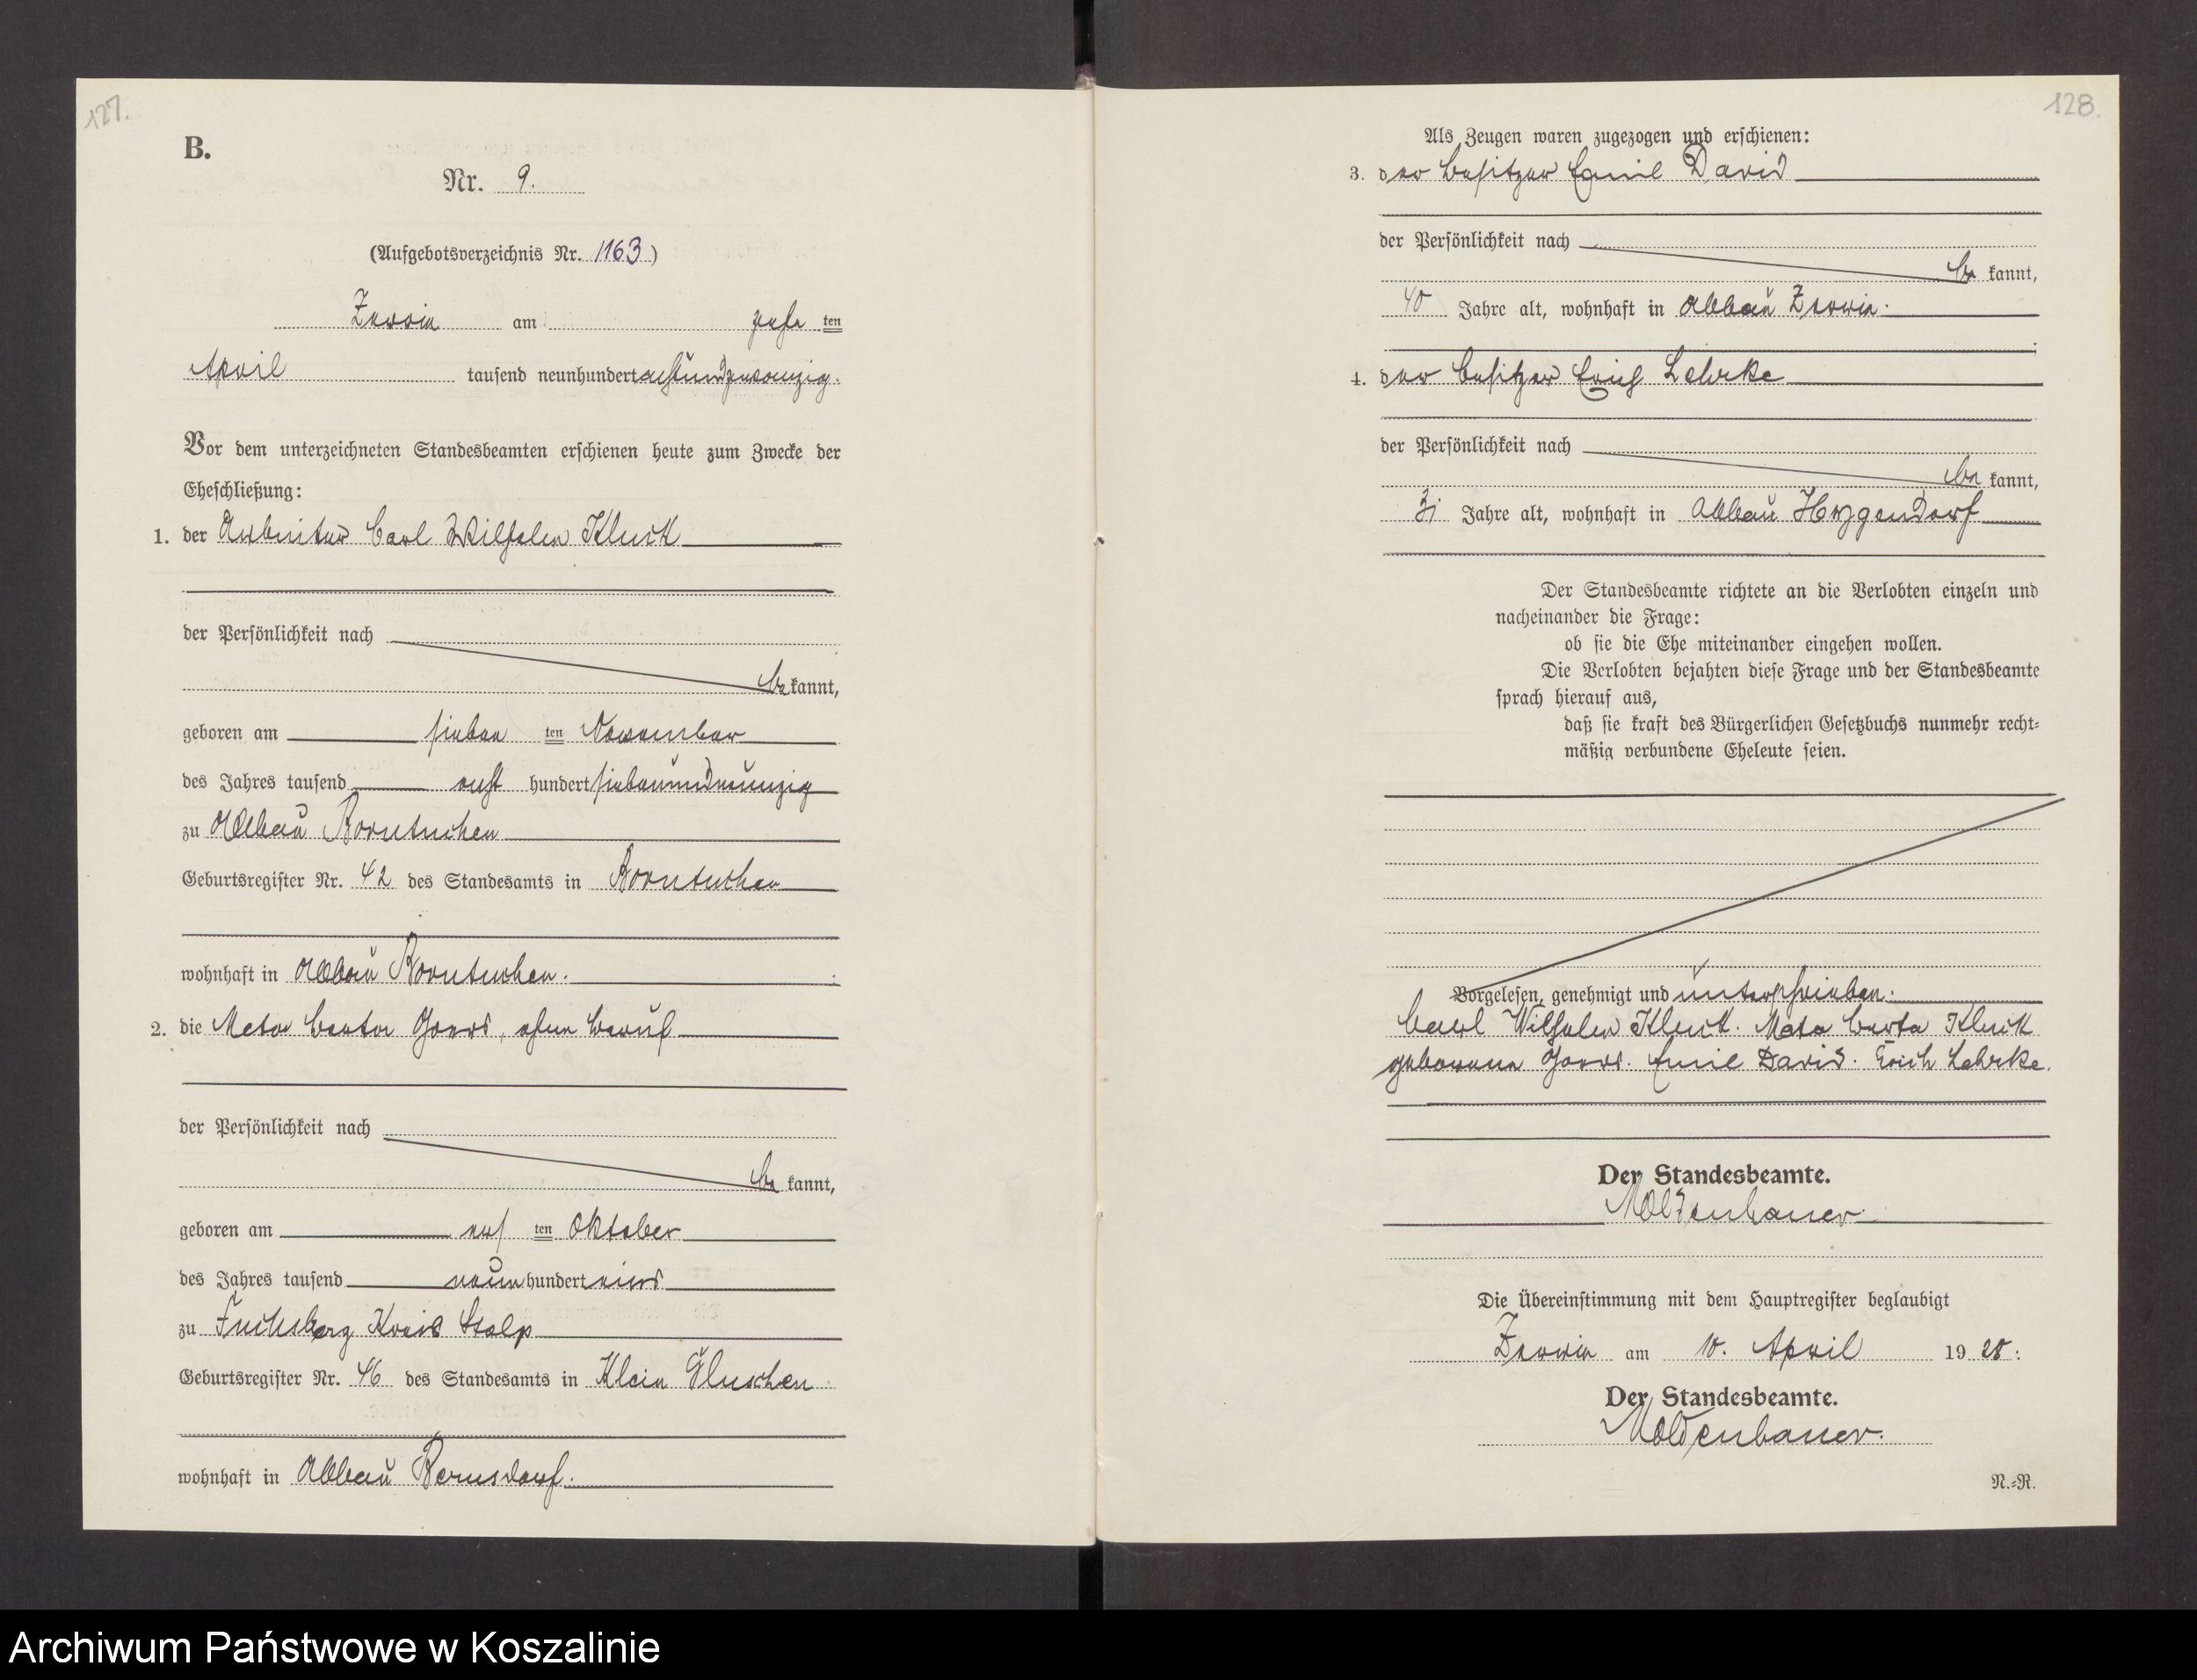 127.
B.
Nr. 9.
(Aufgebotsverzeichnis Nr. 1163)
Zerrin am zehn ten
April tausend neunhundert achtundzwanzig.
Vor dem unterzeichneten Standesbeamten erschienen heute zum Zwecke der
Eheschließung:
1. der Arbeiter Carl Wilhelm Kluck
der Persönlichkeit nach
be kannt,
geboren am sieben ten November
des Jahres tausend acht hundert siebenundneunzig
zu Abbau Borntuchen
Geburtsregister Nr. 42 des Standesamts in Borntuchen
wohnhaft in Abbau Borntuchen.
2. die Meta Berta ohne Beruf
der Persönlichkeit nach
be kannt,
geboren am ten Oktober
des Jahres tausend neun hundert eins
zu Fuchsberg Kreis Stolp
Geburtsregister Nr. 46 des Standesamts in Klein Gluschen
wohnhaft in Abbau Bernsdorf.
128.
Als Zeugen waren zugezogen und erschienen:
3. der Besitzer Emil David
der Persönlichkeit nach
be kannt,
40 Jahre alt, wohnhaft in Abbau Zerrin.
4. der Besitzer Erich Lehrke
der Persönlichkeit nach
be kannt,
Jahre alt, wohnhaft in Abbau Hygendorf
Der Standesbeamte richtete an die Verlobten einzeln und
nacheinander die Frage:
ob sie die Ehe miteinander eingehen wollen.
Die Verlobten bejahten diese Frage und der Standesbeamte
sprach hierauf aus,
daß sie kraft des Bürgerlichen Gesetzbuchs nunmehr recht-
mäßig verbundene Eheleute seien.
Vorgelesen, genehmigt und unterschrieben.
Carl Wilhelm Kluck. Meta Berta Kluck
geborene Emil David. Erich Lehrke.
Der Standesbeamte.
Moldenhauer.
Die Übereinstimmung mit dem Hauptregister beglaubigt
Zerrin am 10. April 19 28.
Der Standesbeamte.
Moldenhauer.
N.-R.
Archiwum Państwowe w Koszalinie